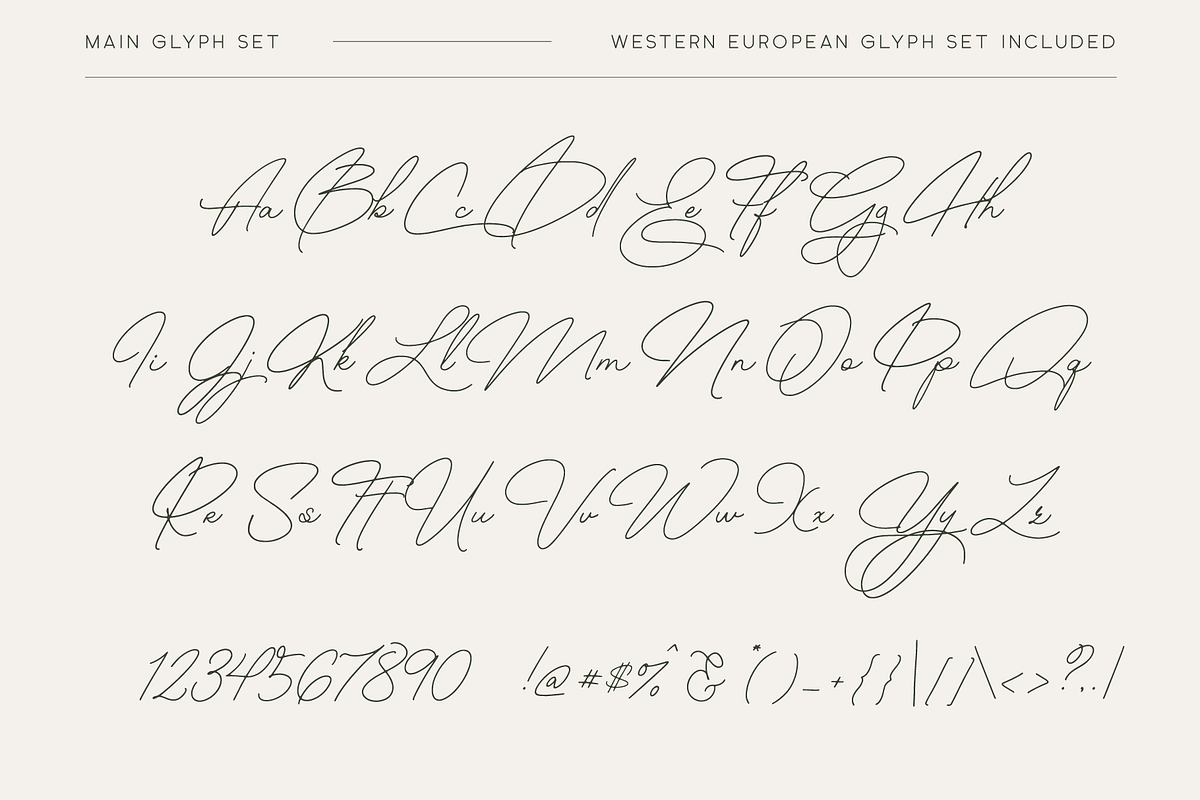 MAIN GLYPH SET WESTERN EUROPEAN GLYPH SET INCLUDED
Aa Bb Cc Dd Ee Ff Gg Hh
Ii Jj Kk Ll Mm Nn Oo Pp Qq
Rr Ss Tt Uu Vv Ww Xx Yy Zz
1234567890 !@#$%^&*()_+{}|[]\<>?,./